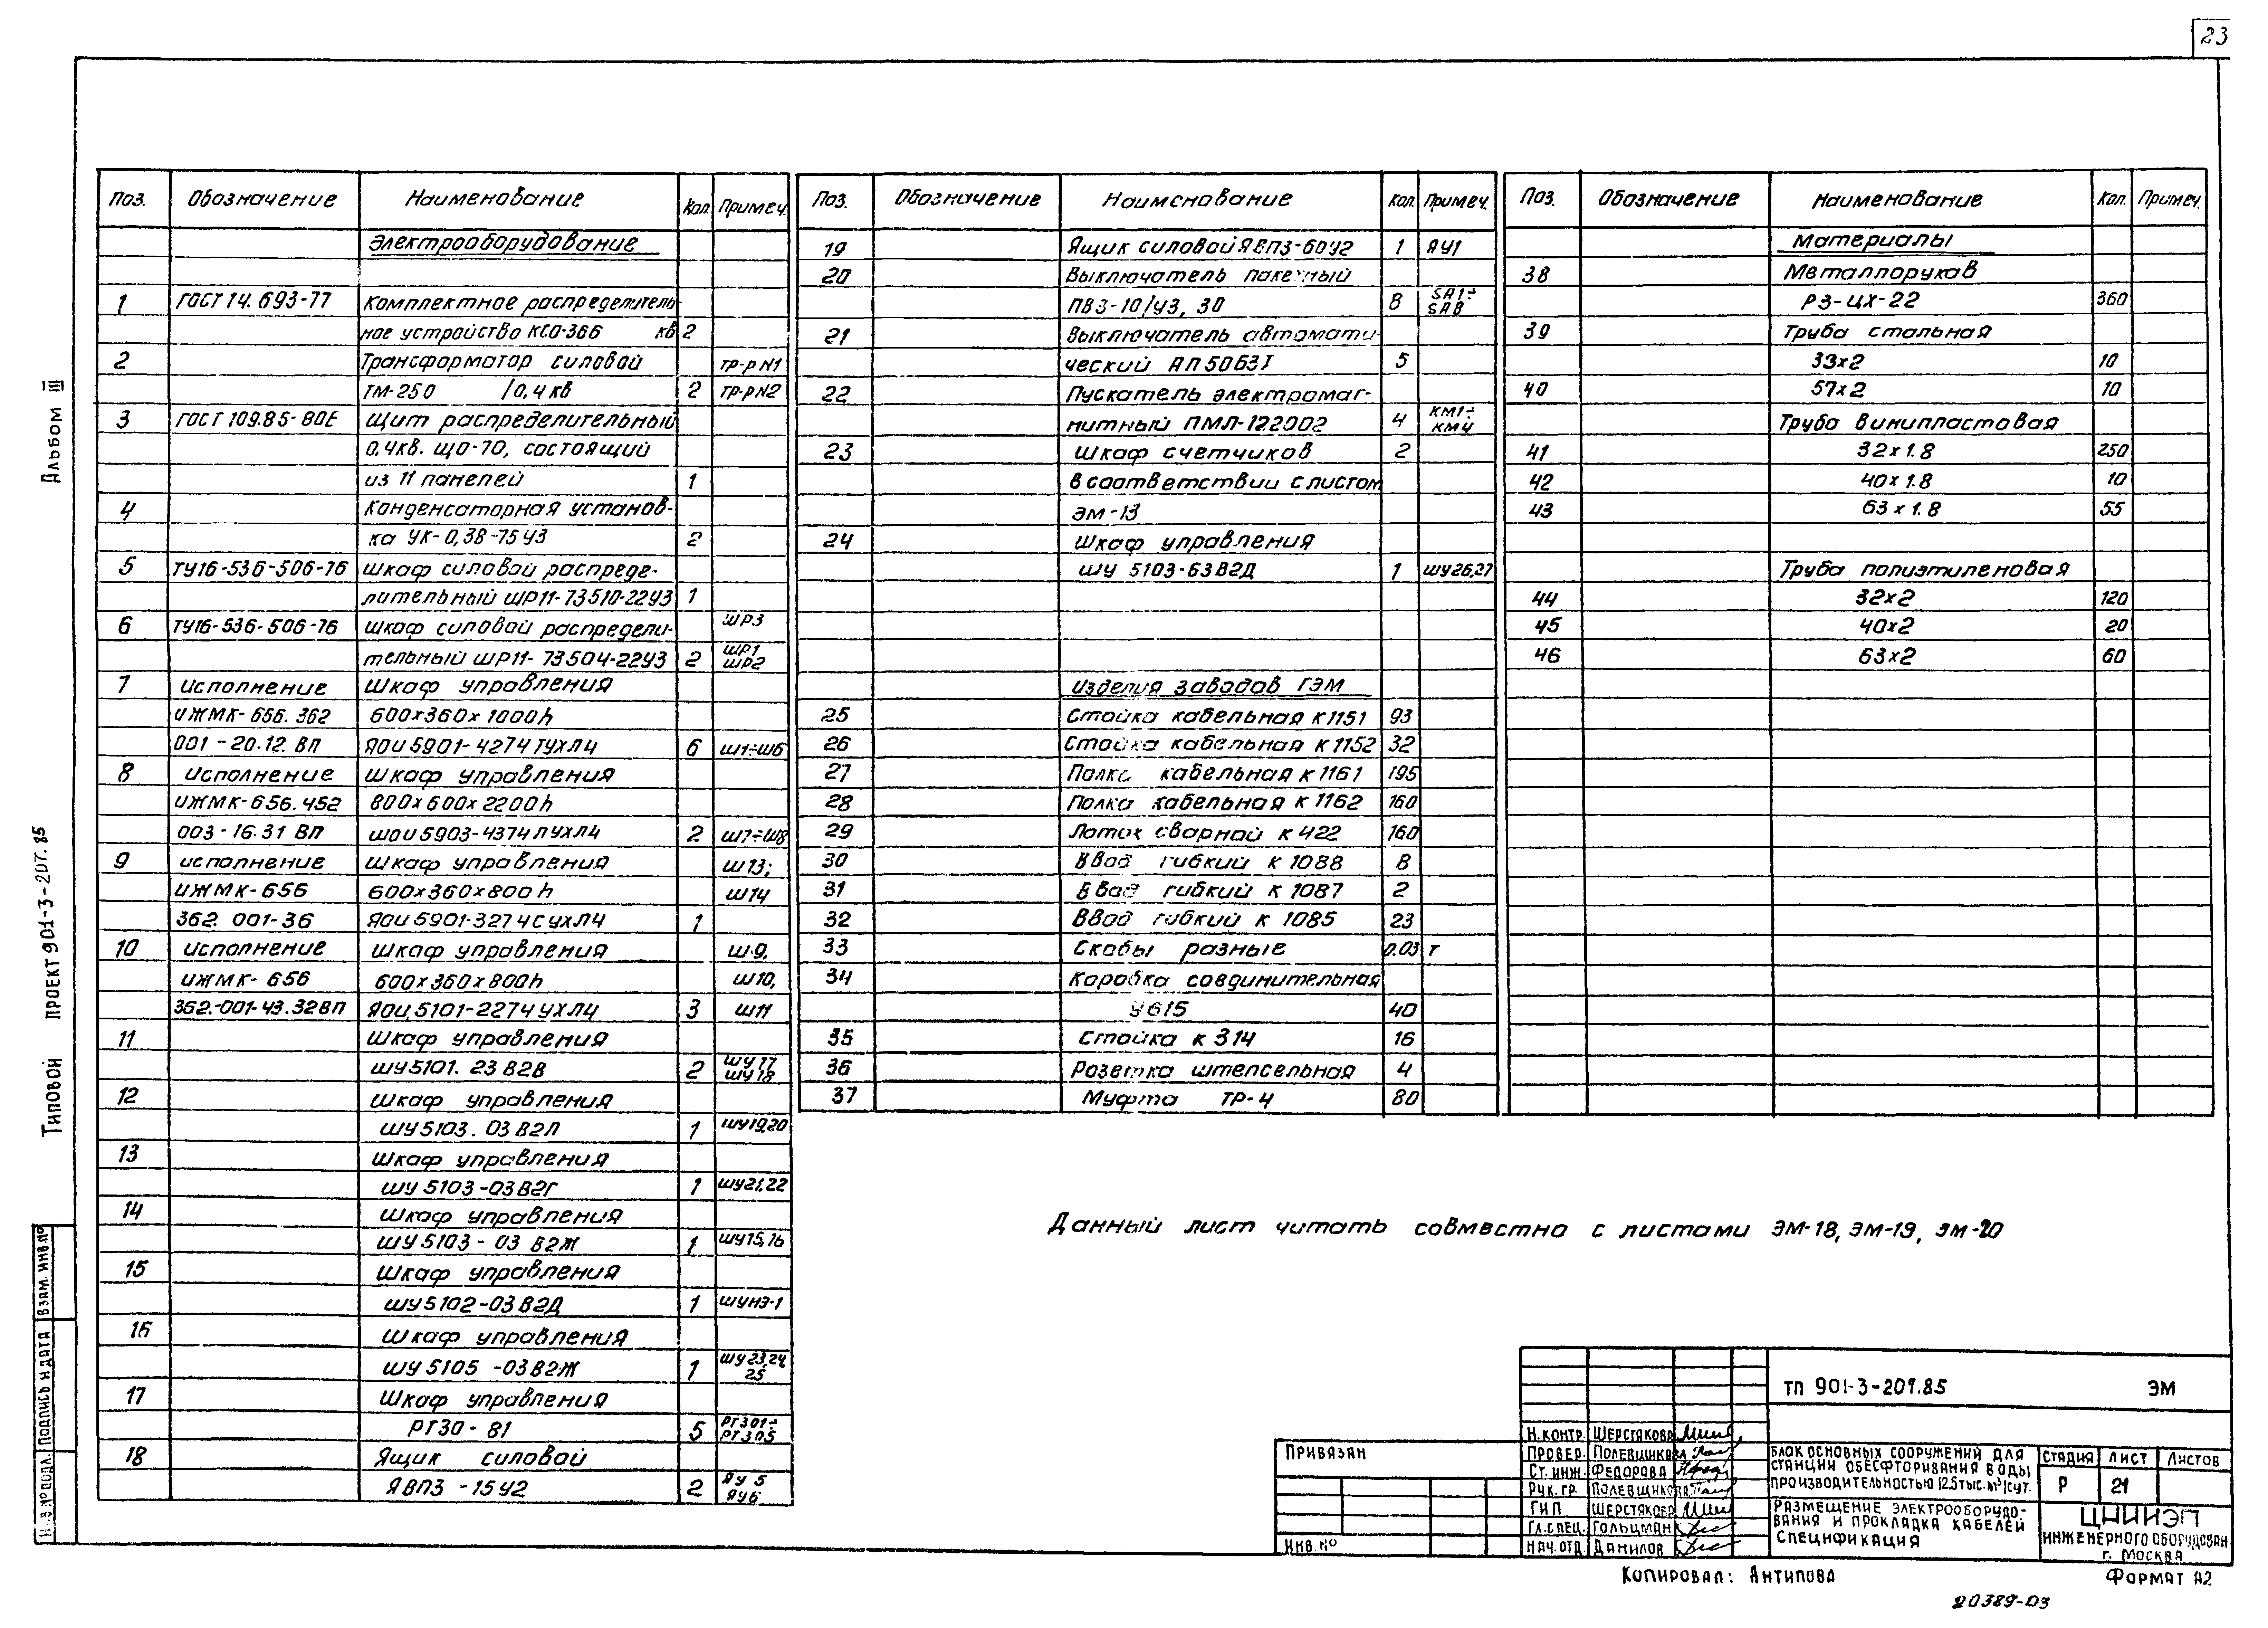 23
Альбом III
Типовой проект 901-3-207.85
Поз. Обозначение Наименование Кол Примеч.
Электрооборудование
1 ГОСТ 14.693-77 Комплектное распределитель-
ное устройство КСО-366 кв 2
2 Трансформатор силовой тр-р N1
ТМ-250 /0,4 кв 2 тр-р N2
3 ГОСТ 109.85-80Е Щит распределительный
0.4кв. ЩО-70, состоящий
из 11 панелей 1
4 Конденсаторная установ-
ка УК-0,38-75У3 2
5 ТУ16-536-506-76 Шкаф силовой распреде-
лительный ШР11-73510-22У3 1
6 ТУ16-536-506-76 Шкаф силовой распредели- ШР3
тельный ШР11-73504-22У3 2 ШР1 ШР2
7 Исполнение Шкаф управления
ИЖМК-656.362 600×360×1000h
001-20.12.ВП ЯОИ 5901-4274ТУХЛ4 6 Ш1÷Ш6
8 Исполнение Шкаф управления
ИЖМК-656.452 800×600×2200h
003-16.31 ВП ШОИ 5903-4374ЛУХЛ4 2 Ш7÷Ш8
9 исполнение Шкаф управления Ш13;
ИЖМК-656 600×360×800h Ш14
362.001-36 ЯОИ 5901-3274СУХЛ4 1
10 исполнение Шкаф управления Ш9,
ИЖМК-656 600×360×800h Ш10,
362.-001-43.32ВП ЯОИ,5101-2274УХЛ4 3 Ш11
11 Шкаф управления
ШУ5101.23В2В 2 ШУ17 ШУ18
12 Шкаф управления
ШУ5103.03В2Л 1 ШУ19,20
13 Шкаф управления
ШУ 5103-03В2Г 1 ШУ21,22
14 Шкаф управления
ШУ5103-03 В2Ж 1 ШУ15,16
15 Шкаф управления
ШУ5102-03В2Д 1 ШУНЭ-1
16 Шкаф управления
ШУ 5105-03В2Ж 1 ШУ23,24, 25
17 Шкаф управления
РТ30-81 5 РТ301÷ РТ305
18 Ящик силовой
ЯВПЗ-15У2 2 ЯУ5 ЯУ6
Поз. Обозначение Наименование Кол Примеч.
19 Ящик силовой ЯВПЗ-60У2 1 ЯУ1
20 Выключатель пакетный
ПВ3-10/У3, 30 8 SA1÷ SA8
21 Выключатель автомати-
ческий АП5063Т 5
22 Пускатель электромаг-
нитный ПМЛ-122002 4 КМ1÷ КМ4
23 Шкаф счетчиков 2
в соответствии с листом
ЭМ-13
24 Шкаф управления
ШУ 5103-63В2Д 1 ШУ26,27
Изделия заводов ГЭМ
25 Стойка кабельная к 1151 93
26 Стойка кабельная к 1152 32
27 Полка кабельная к 1161 195
28 Полка кабельная к 1162 160
29 Лоток сварной к 422 160
30 Ввод гибкий к 1088 8
31 Ввод гибкий к 1087 2
32 Ввод гибкий к 1085 23
33 Скобы разные 0.03 т
34 Коробка соединительная
У615 40
35 Стойка к 314 16
36 Розетка штепсельная 4
37 Муфта ТР-4 80
Поз. Обозначение Наименование Кол. Примеч.
Материалы
38 Металлорукав
РЗ-ЦХ-22 360
39 Труба стальная
33×2 10
40 57×2 10
Труба винипластовая
41 32×1.8 250
42 40×1.8 10
43 63×1.8 55
Труба полиэтиленовая
44 32×2 120
45 40×2 20
46 63×2 60
Данный лист читать совместно с листами ЭМ-18, ЭМ-19, ЭМ-20
Инв.№ подл. Подпись и дата Взам. инв.№
Привязан
Инв. №
ТП 901-3-207.85 ЭМ
Н.контр. Шерстякова
Провер. Полевщикова
Ст. инж. Федорова
Рук. гр. Полевщикова
ГИП Шерстякова
Гл.спец. Гольцман
Нач. отд. Данилов
Блок основных сооружений для
станции обесфторивания воды
производительностью 12.5 тыс. м³/сут.
Стадия Лист Листов
Р 21
Размещение электрооборудо-
вания и прокладка кабелей
Спецификация
ЦНИИЭП
инженерного оборудован.
г. Москва
Копировал: Антипова Формат А2
20389-03